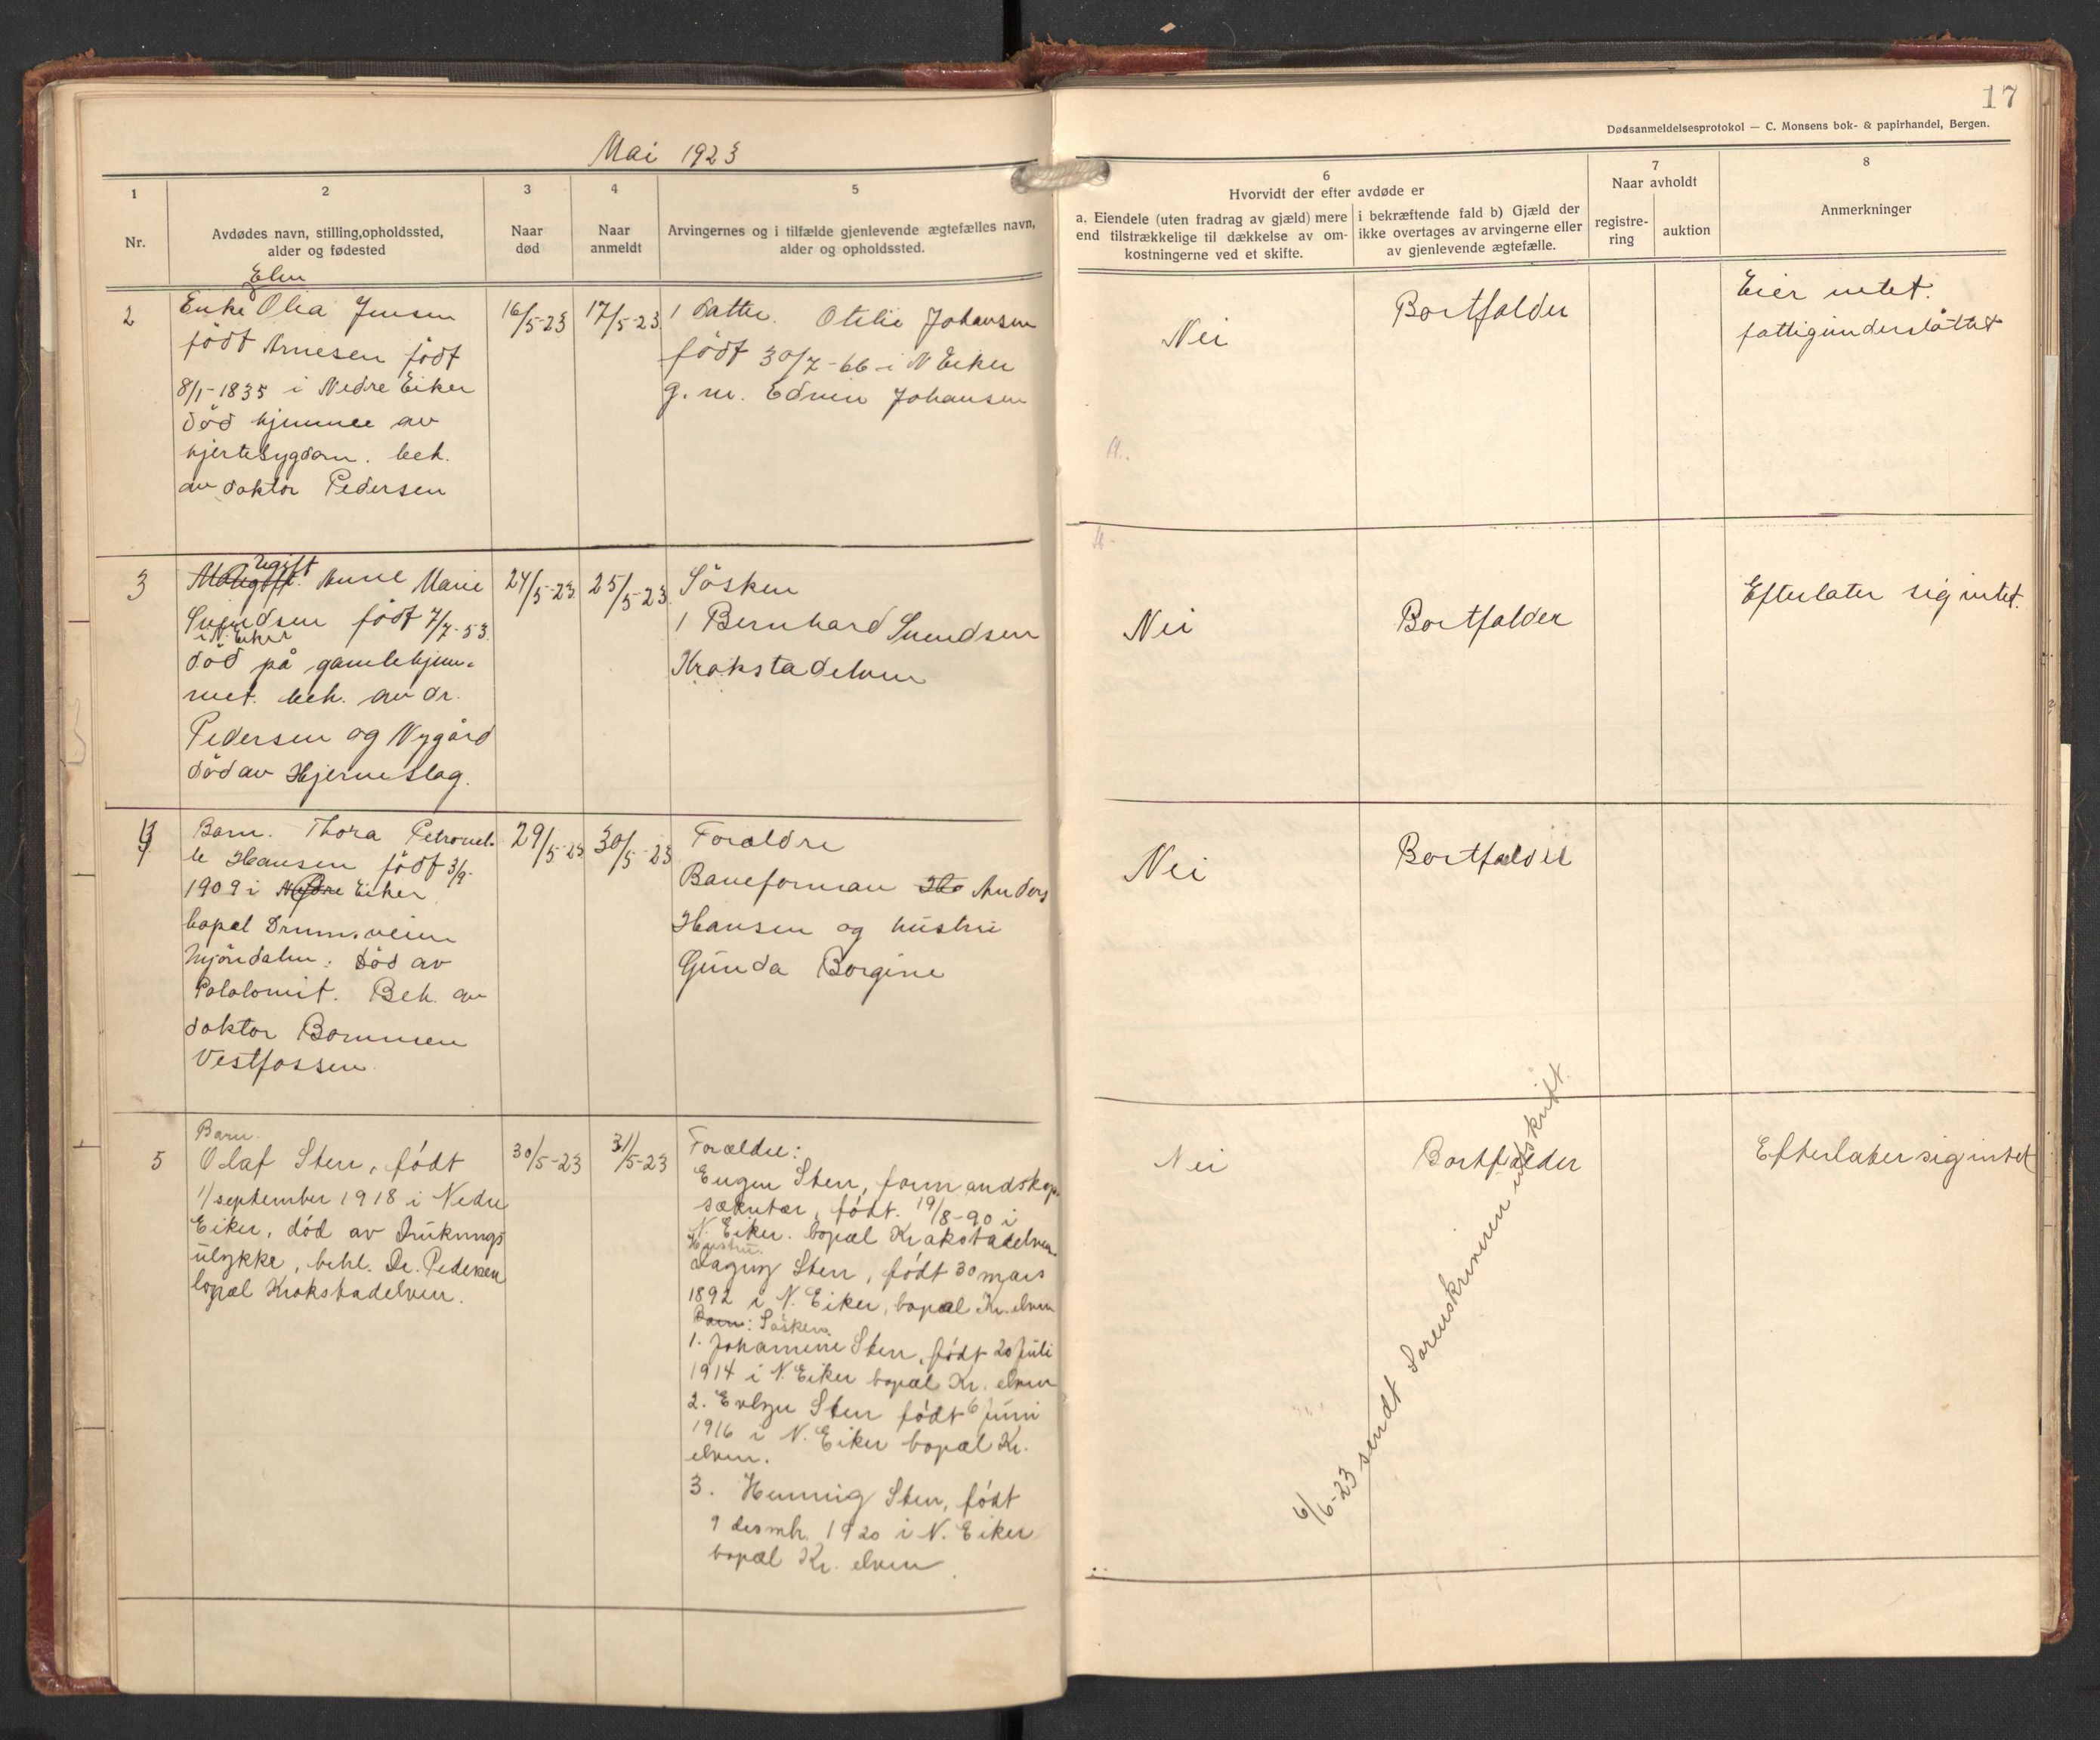 17
Dødsanmeldelsesprotokol — C. Monsens bok- & papirhandel, Bergen.
Mai 1923
1
Nr.
2
Avdødes navn, stilling, opholdssted,
alder og fødested
3
Naar
død
4
Naar
anmeldt
5
Arvingernes og i tilfælde gjenlevende ægtefælles navn,
alder og opholdssted.
6
Hvorvidt der efter avdøde er
a. Eiendele (uten fradrag av gjæld) mere
end tilstrækkelige til dækkelse av om-
kostningerne ved et skifte.
i bekræftende fald b) Gjæld der
ikke overtages av arvingerne eller
av gjenlevende ægtefælle.
7
Naar avholdt
registre-
ring
auktion
8
Anmerkninger
2
Elen
Enke Olea Jensen
född Arnesen född
8/1-1835 i Nedre Eiker
död hjemme av
hjertesygdom. beh.
av doktor Pedersen
16/5-23
17/5-23
1 Datter. Otelie Johansen
född 30/7-66 i N Eiker
g. m. Edvin Johansen
Nei
Bortfalder
Eier intet.
fattigunderstöttet
3
Ugift
Anne Marie
Svendsen född 7/7-53.
i N. Eiker
död på gamlehjem-
met. beh. av dr.
Pedersen og Nygård
död av Hjerneslag.
24/5-23
25/5-23
Sösken
1 Bernhard Svendsen
Krokstadelven
Nei
Bortfalder
Efterlater sig intet.
4
Barn. Thora Petronel-
le Hansen född 3/9-
1909 i Eiker
bopel Dramm.veien
Mjöndalen: Död av
Beh. av
doktor Bommen
Vestfossen
29/5-23
30/5-23
Foreldre
Baneforman Anders
Hansen og hustru
Gunda Borgine
Nei
Bortfalder
5
Barn.
Olaf Sten, født
1/september 1918 i Nedre
Eiker, død av Druknings
ulykke, behl. Dr. Pedersen
bopæl Krokstadelven.
30/5-23
31/5-23
Forældre:
Eugen Sten, formandskap-
sækretær, født. 19/8-90 i
N. Eiker. bopæl Krokstadelven
Hustru.
Dagny Sten, født 30 mars
1892 i N. Eiker, bopæl Kr. elven
Barn: Søsken.
1. Johannine Sten, født 20 juli
1914 i N. Eiker bopæl Kr. elven
2. Evelyn Sten født 6 juni
1916 i N. Eiker bopæl Kr.
elven.
3. Henning Sten, født
9 desmb. 1920 i N. Eiker
bopæl Kr. elven.
Nei
Bortfalder
Efterlater sig intet
6/6-23 sendt Sorenskriveren utskrift.